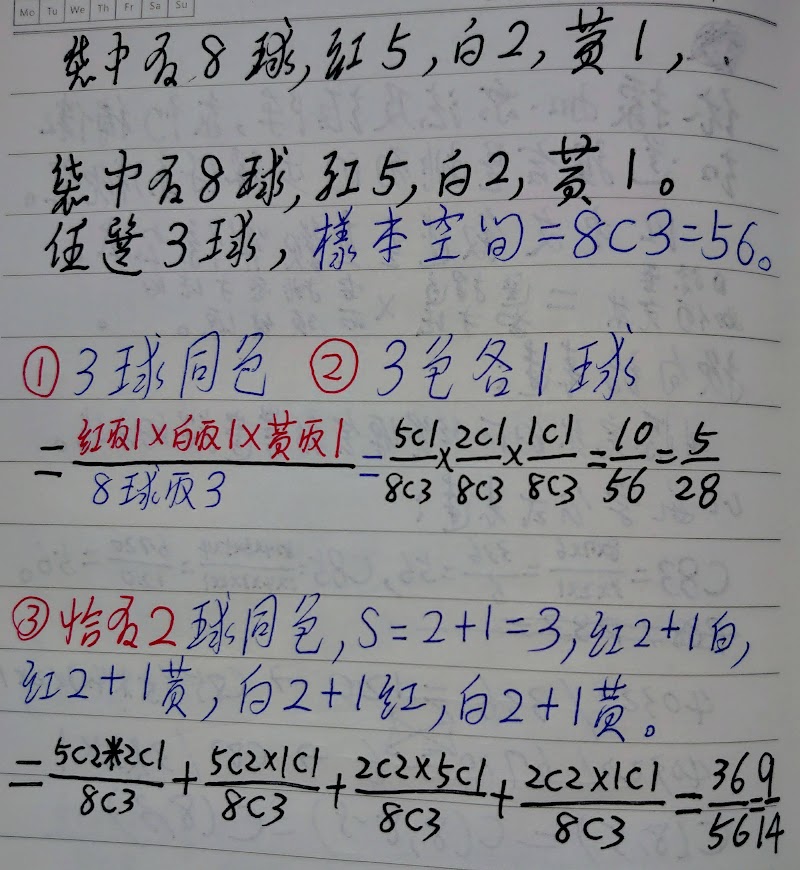 Mo Tu We Th Fr Sa Su
袋中有8球,紅5,白2,黃1,
袋中有8球,紅5,白2,黃1。
任選3球,樣本空间=8C3=56。
①3球同色 ②3色各1球
=紅取1×白取1×黃取1/8球取3=5C1/8C3×2C1/8C3×1C1/8C3=10/56=5/28
③恰有2球同色,S=2+1=3,紅2+1白,
紅2+1黃,白2+1紅,白2+1黃。
=5C2*2C1/8C3+5C2×1C1/8C3+2C2×5C1/8C3+2C2×1C1/8C3=36/56=9/14